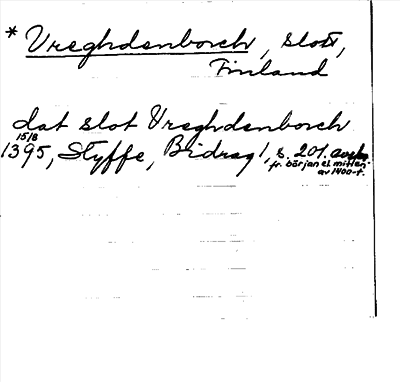 * Vreghdenborch, slott,
Finland
dat slot Vreghdenborch
15/8
1395, Styffe, Bidrag 1, s. 201. avskr.
fr. början el. mitten
av 1400-t.